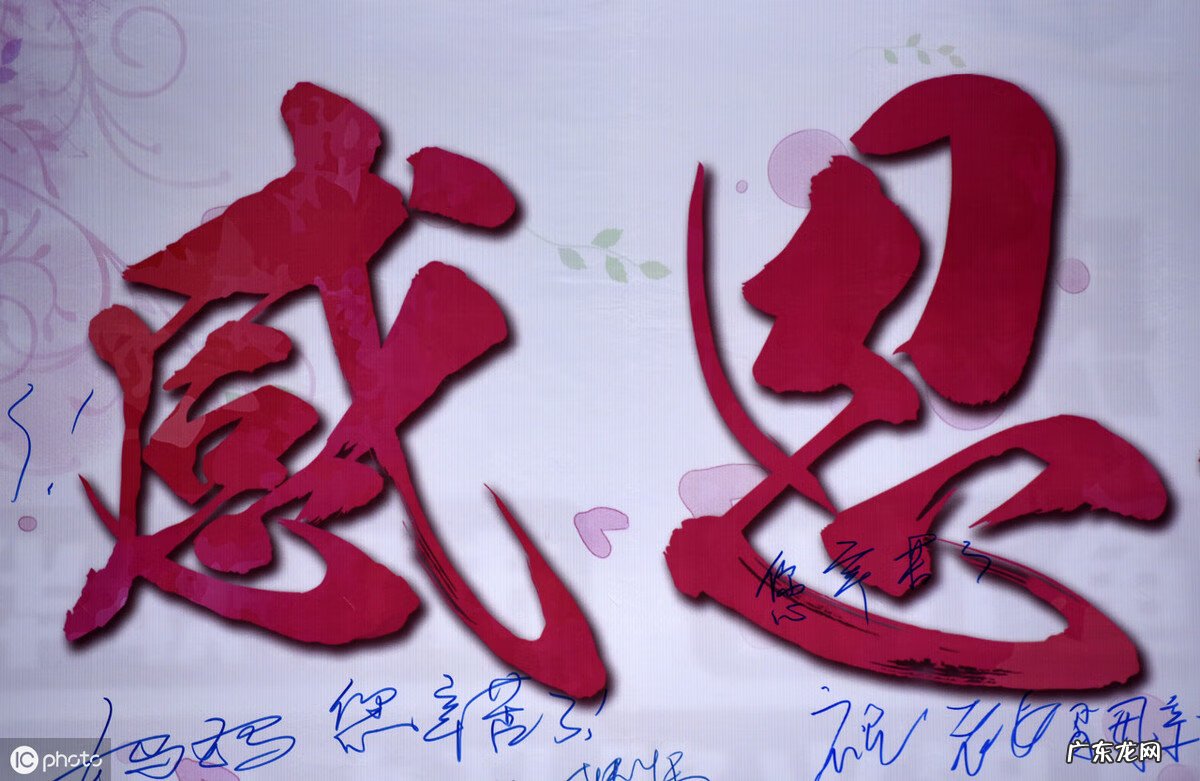 感恩
您辛苦了
妈妈 您辛苦了
祝
iC photo
广东龙网